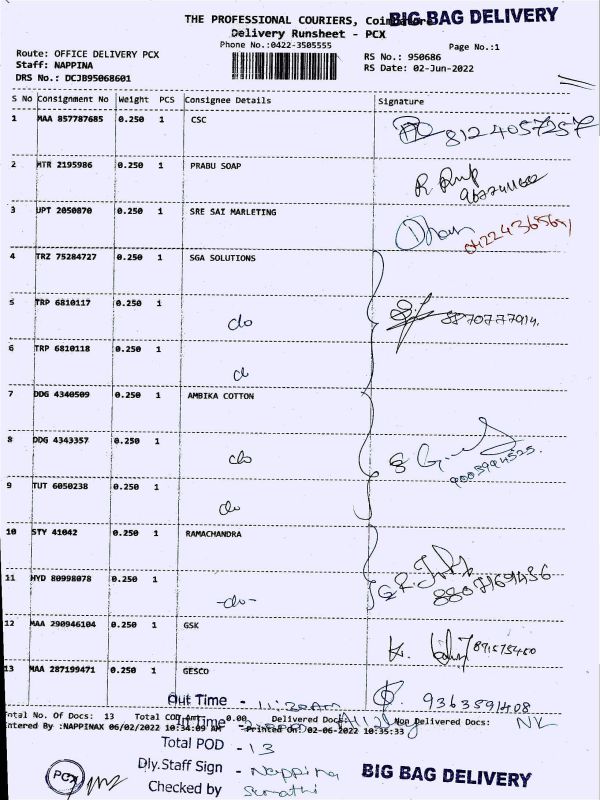 BIG BAG DELIVERY
THE PROFESSIONAL COURIERS, Coimbatore
Delivery Runsheet - PCX
Phone No.:0422-3505555
Page No.:1
Route: OFFICE DELIVERY PCX
Staff: NAPPINA
DRS No.: DCJB95068601
RS No.: 950686
RS Date: 02-Jun-2022
S No Consignment No Weight PCS Consignee Details Signature
1 MAA 857787685 0.250 1 CSC 8124057257
2 MTR 2195986 0.250 1 PRABU SOAP
3 UPT 2050870 0.250 1 SRE SAI MARLETING
4 TRZ 75284727 0.250 1 SGA SOLUTIONS
5 TRP 6810117 0.250 1 do 8870777914.
6 TRP 6810118 0.250 1 d
7 DDG 4340509 0.250 1 AMBIKA COTTON
8 DDG 4343357 0.250 1 do 9003994525.
9 TUT 6050238 0.250 1 do
10 STY 41042 0.250 1 RAMACHANDRA
11 HYD 80998078 0.250 1 -do- 8807169456
12 MAA 290946104 0.250 1 GSK
13 MAA 287199471 0.250 1 GESCO 9363591408
Out Time - 11:30am
Total No. Of Docs: 13 Total COD Amt 0.00 Delivered Docs: Non Delivered Docs: NK
In Time -
Entered By :NAPPINAX 06/02/2022 10:34:09 AM Printed On: 02-06-2022 10:35:33
Total POD - 13
Dly.Staff Sign - Nappina
BIG BAG DELIVERY
Checked by Sumathi
PCX